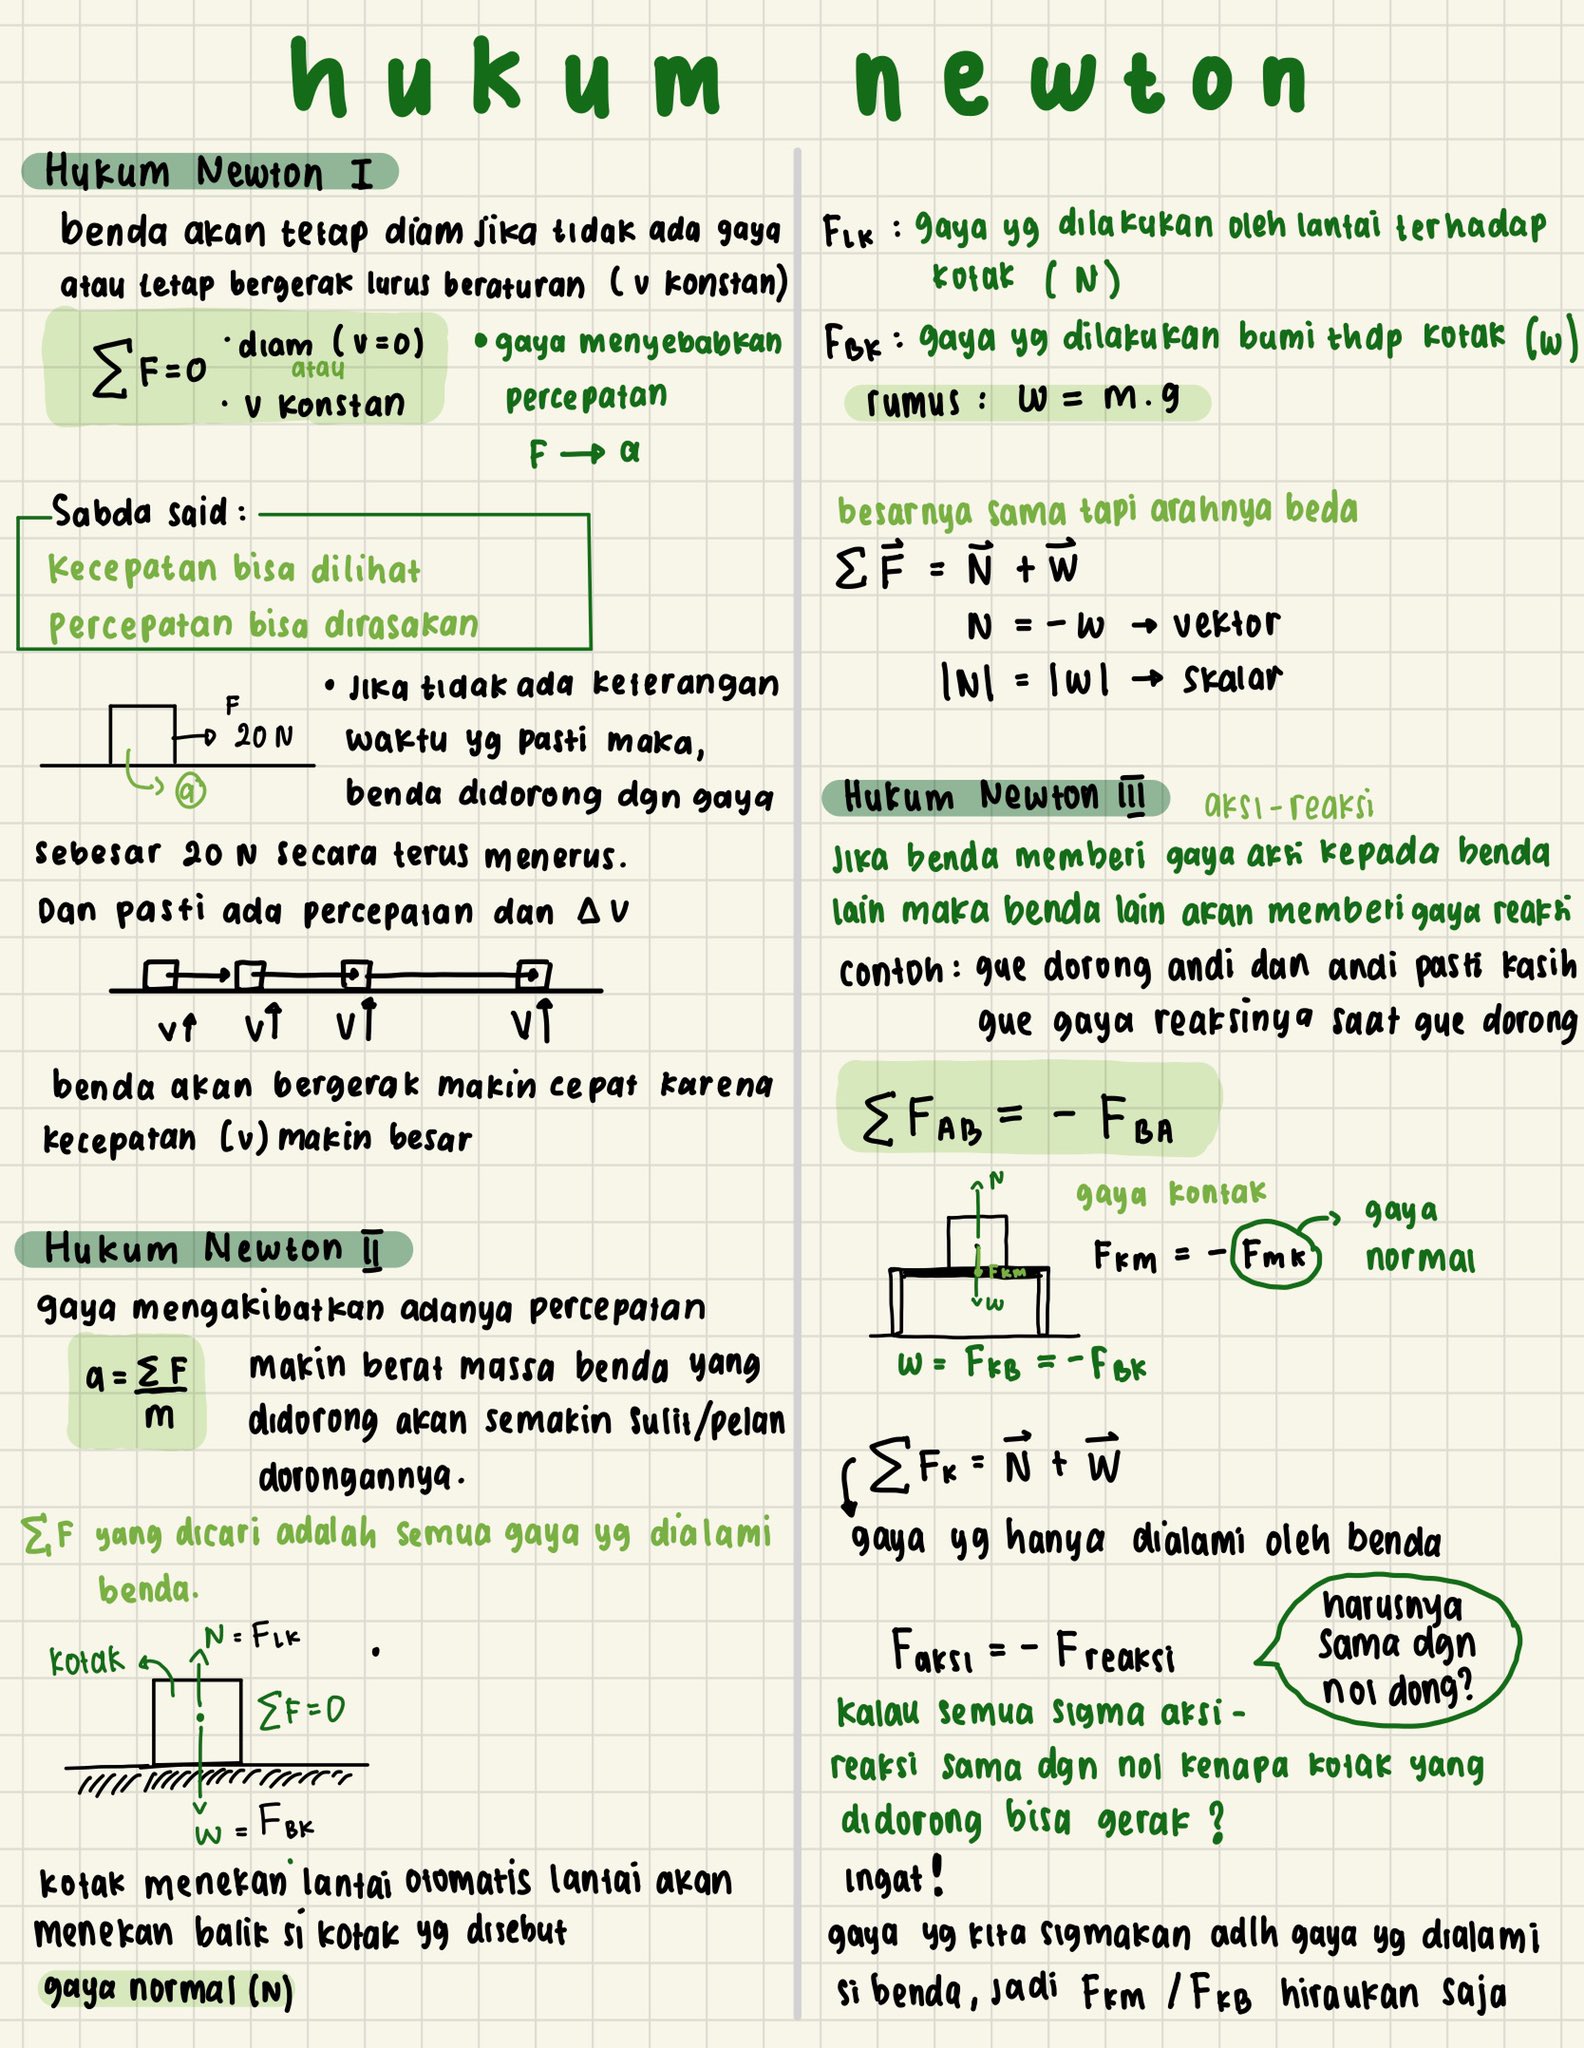 hukum newton
Hukum Newton I
benda akan tetap diam jika tidak ada gaya
atau tetap bergerak lurus beraturan (v konstan)
∑F=0 · diam (v=0)
atau
· v konstan
• gaya menyebabkan
percepatan
F → a
Sabda said:
Kecepatan bisa dilihat
Percepatan bisa dirasakan
F
20 N
a
• Jika tidak ada keterangan
waktu yg pasti maka,
benda didorong dgn gaya
sebesar 20 N secara terus menerus.
Dan pasti ada percepatan dan Δv
v↑ v↑ v↑ v↑
benda akan bergerak makin cepat karena
kecepatan (v) makin besar
Hukum Newton II
gaya mengakibatkan adanya percepatan
a = ∑F
m
makin berat massa benda yang
didorong akan semakin sulit/pelan
dorongannya.
∑F yang dicari adalah semua gaya yg dialami
benda.
N = FLK
kotak
∑F=0
W = FBK
kotak menekan lantai otomatis lantai akan
menekan balik si kotak yg disebut
gaya normal (N)
FLK : gaya yg dilakukan oleh lantai terhadap
kotak (N)
FBK : gaya yg dilakukan bumi thdp kotak (w)
rumus : w = m.g
besarnya sama tapi arahnya beda
∑F⃗ = N⃗ + W⃗
N = -w → vektor
|N| = |w| → skalar
Hukum Newton III aksi-reaksi
Jika benda memberi gaya aksi kepada benda
lain maka benda lain akan memberi gaya reaksi
contoh : gue dorong andi dan andi pasti kasih
gue gaya reaksinya saat gue dorong
∑FAB = - FBA
N
FKM
w
gaya kontak
FKM = - FMK → gaya
normal
w = FKB = -FBK
∑FK = N⃗ + W⃗
gaya yg hanya dialami oleh benda
Faksi = - Freaksi
harusnya
sama dgn
nol dong?
kalau semua sigma aksi-
reaksi sama dgn nol kenapa kotak yang
didorong bisa gerak?
Ingat!
gaya yg kita sigmakan adlh gaya yg dialami
si benda, jadi FKM / FKB hiraukan saja